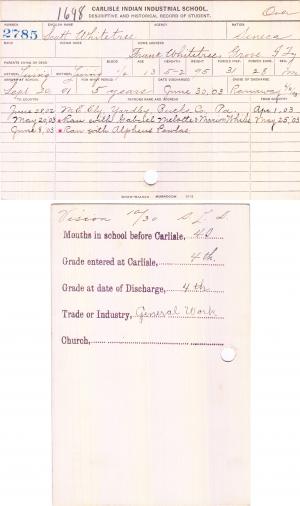 1698
CARLISLE INDIAN INDUSTRIAL SCHOOL.
Over
DESCRIPTIVE AND HISTORICAL RECORD OF STUDENT.
NUMBER ENGLISH NAME AGENCY NATION
2785 Scott Whitetree Seneca
BAND INDIAN NAME HOME ADDRESS
Frank Whitetree, Grove I.Ty
PARENTS LIVING OR DEAD BLOOD AGE HEIGHT WEIGHT FORCED INSP. FORCED EXPR. SEX
FATHER Living MOTHER Living 13 5-2 95 31 28 M
ARRIVED AT SCHOOL FOR WHAT PERIOD DATE DISCHARGED CAUSE OF DISCHARGE
Sept 30 01 5 years June 30, 03 Runaway
TO COUNTRY PATRONS NAME AND ADDRESS FROM COUNTRY
June 28, 02 Yardley Bucks Co. Pa. Apr 1, 03
May 20, 03 Ran with Gabriel May 25, 03
June 8, 03 Ran with Alpheus
Vision 20/30
Months in school before Carlisle, 40
Grade entered at Carlisle, 4th
Grade at date of Discharge, 4th
Trade or Industry, General Work
Church,